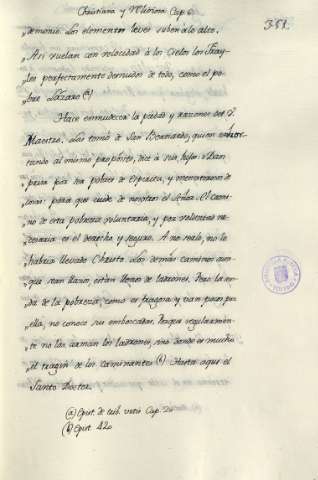 Christiana y Milicia Cap. 6.
351.
„demonio. Los elementos leves suben a lo alto.
„Asi vuelan con velocidad à lo Cielos los Fray-
„les perfectamente desnudos de todo, como el po-
„bre Lazaro (a)
Hace enmudecer la piedad y razones del P.
Maestro. Las tomó de San Bernardo, quien exhor-
tando al mismo proposito, dice a sus hijos:
para ser pobres de Espiritu, y
para que cuide de nosotros el Señor. El cami-
no de esta pobreza voluntaria, y por voluntad ne-
cesaria es el derecho y seguro. A no serlo, no le
habria llevado Christo. Los demás caminos aun-
que sean llanos, estan llenos de ladrones. Pero la sen-
da de la pobreza, como es fragosa y van pocos por
ella, no conoce sus emboscadas. Porque regularmen-
te no las arman los ladrones, sino donde es mucho
„el tragin de los caminantes (b) Hasta aqui el
Santo Doctor.
(a) Epist. de vitæ Cap. 2.
(b) Epist. 42.